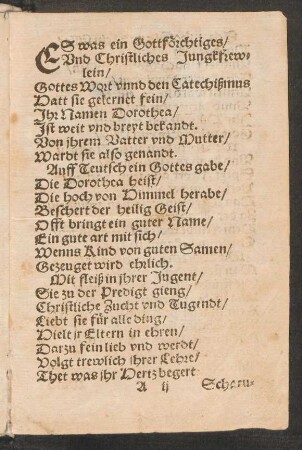 ES was ein Gottförchtiges/
Vnd Christliches Jungkfrew-
lein/
Gottes Wort vnnd den Catechißmus
Hatt sie gelernet fein/
Ihr Namen Dorothea/
Ist weit vnd breyt bekandt.
Von jhrem Vatter vnd Mutter/
Wardt sie also genandt.
Auff Teutsch ein Gottes gabe/
Die Dorothea heist/
Die hoch von Himmel herabe/
Beschert der heilig Geist/
Offt bringt ein guter Name/
Ein gute art mit sich/
Wenns Kind von guten Samen/
Gezeuget wird ehrlich.
Mit fleiß in jhrer Jugent/
Sie zu der Predigt gieng/
Christliche Zucht vnd Tugendt/
Liebt sie für alle ding/
Hielt jr Eltern in ehren/
Darzu fein lieb vnd werdt/
Volgt trewlich jhrer Lehre/
Thet was jhr Hertz begert.
A ij Scharu-